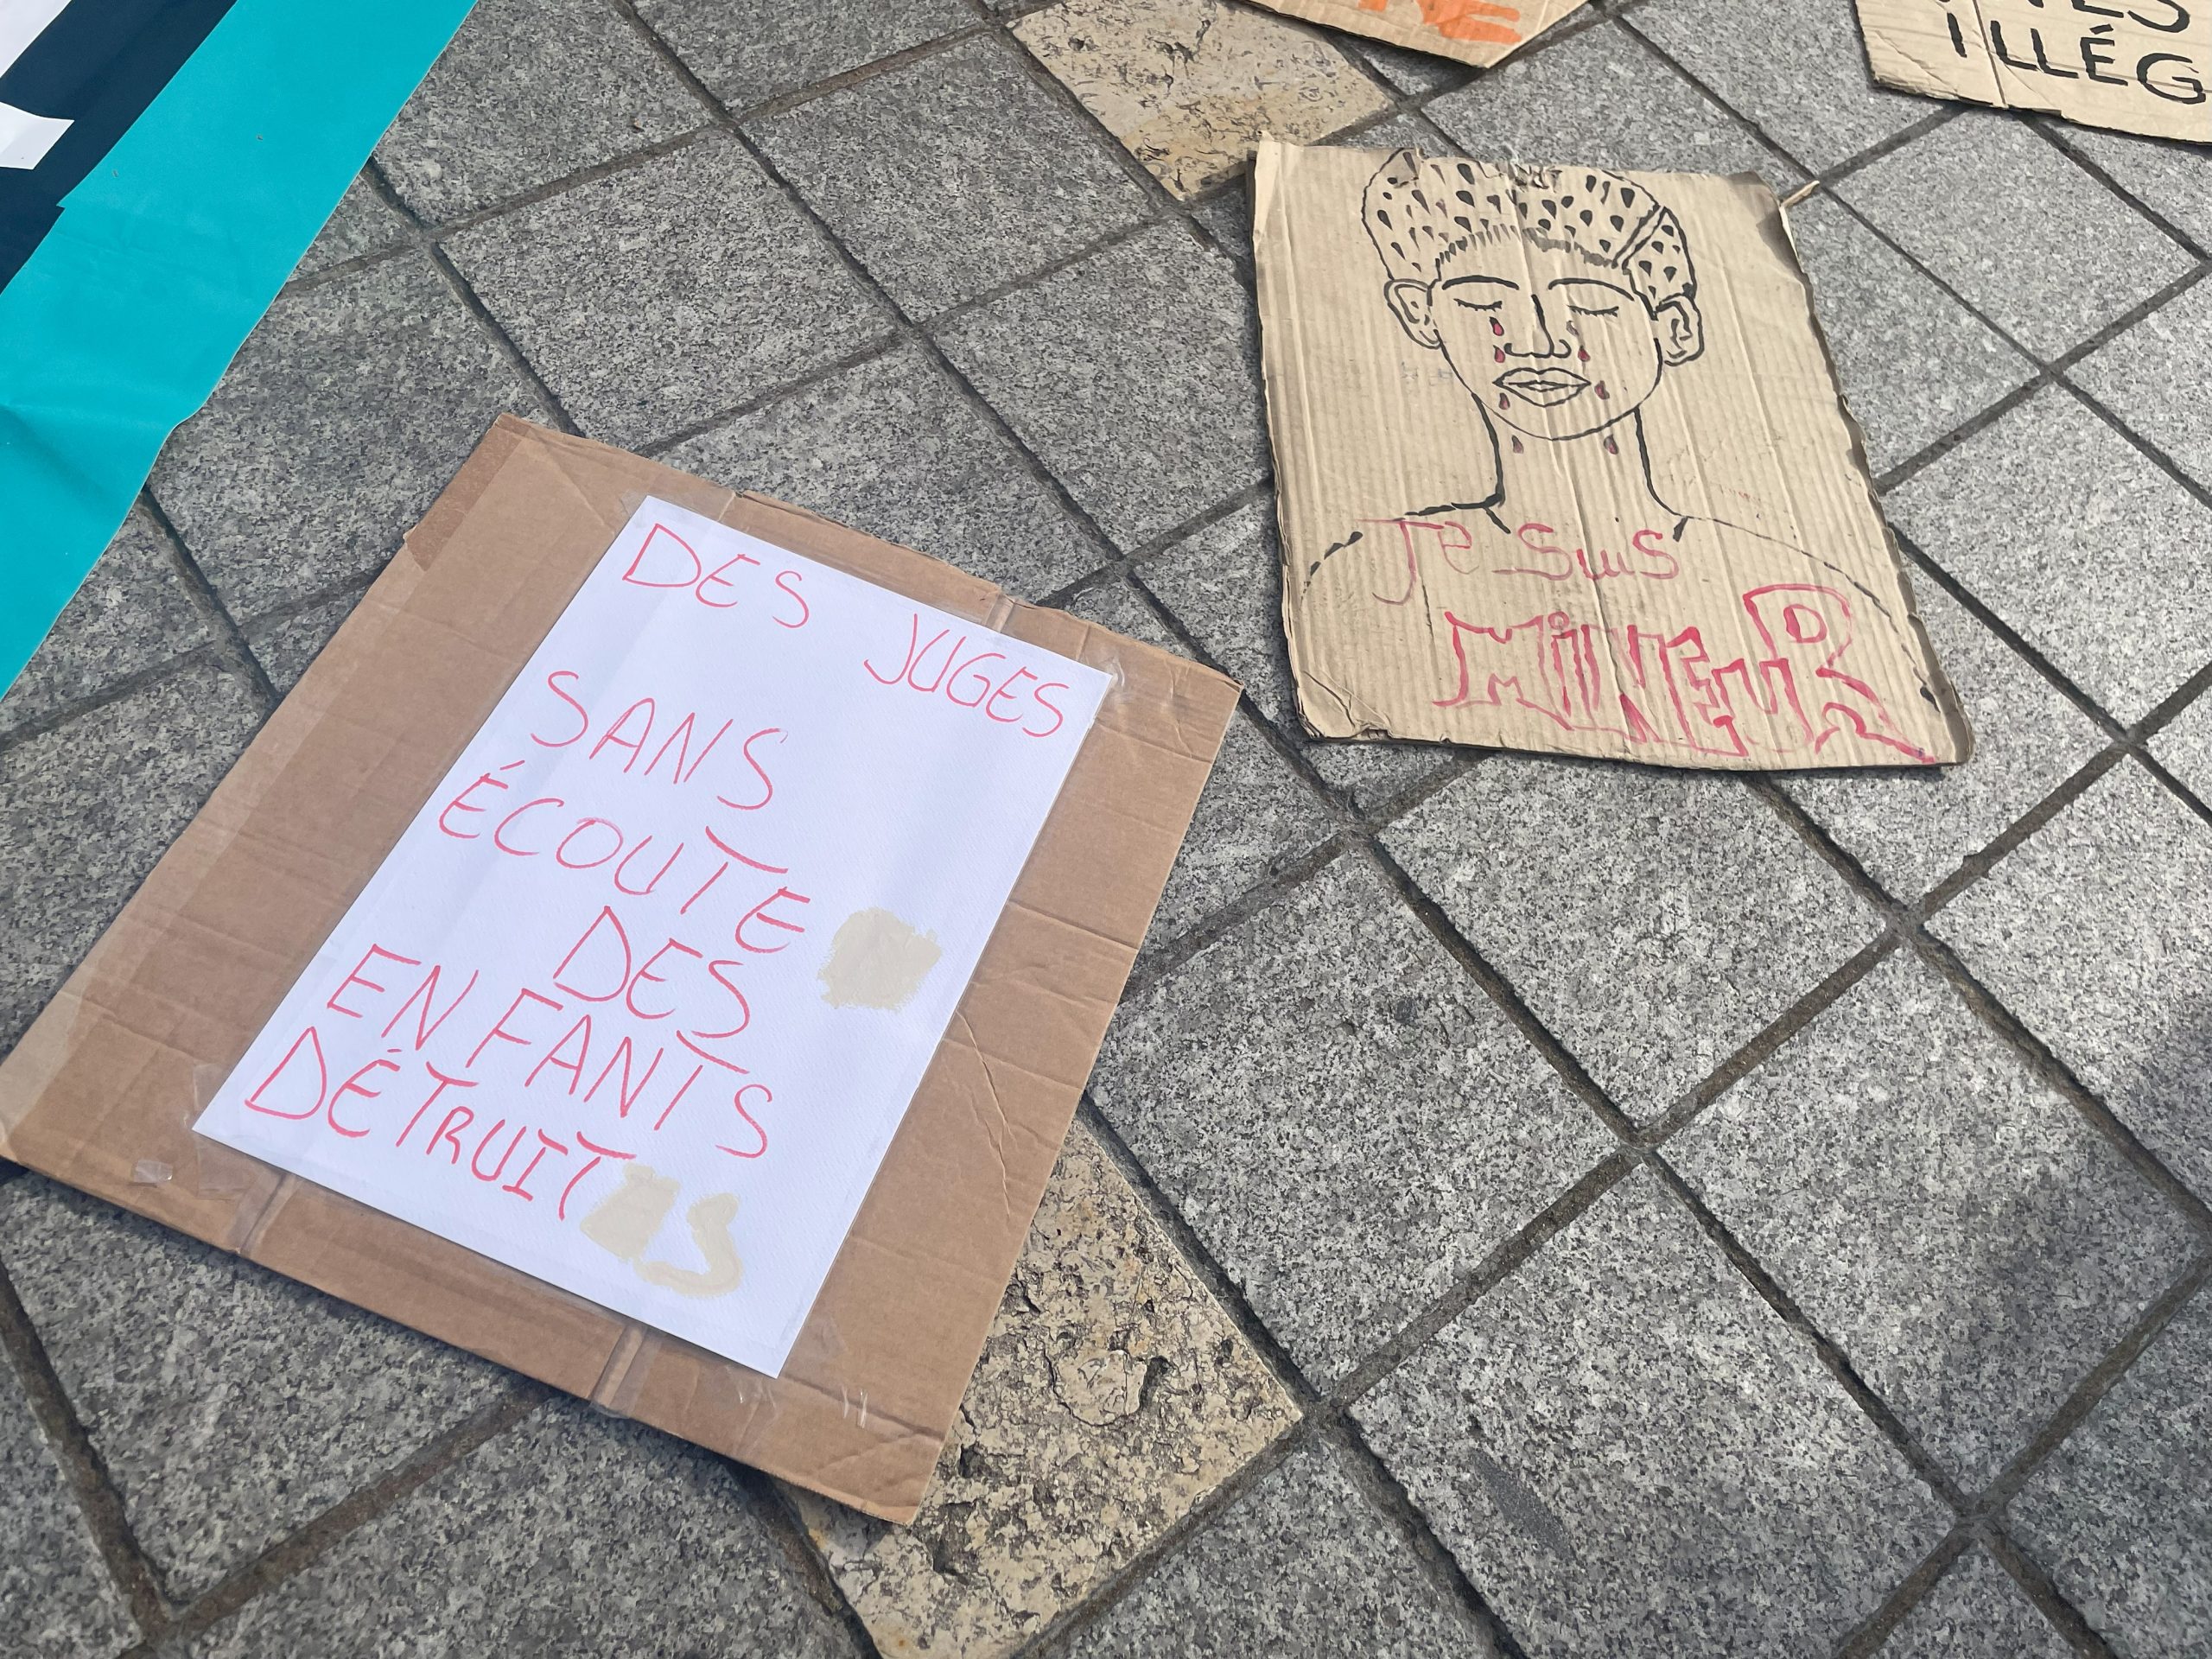 DES JUGES
SANS
ÉCOUTE
DES
ENFANTS
DÉTRUITS
Je suis
MiNEUR
ILLÉG